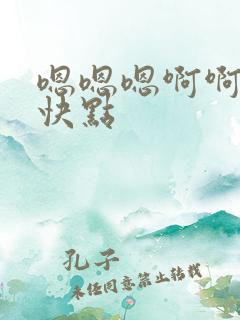 嗯嗯嗯啊啊
快點
孔子
未经同意禁止转载